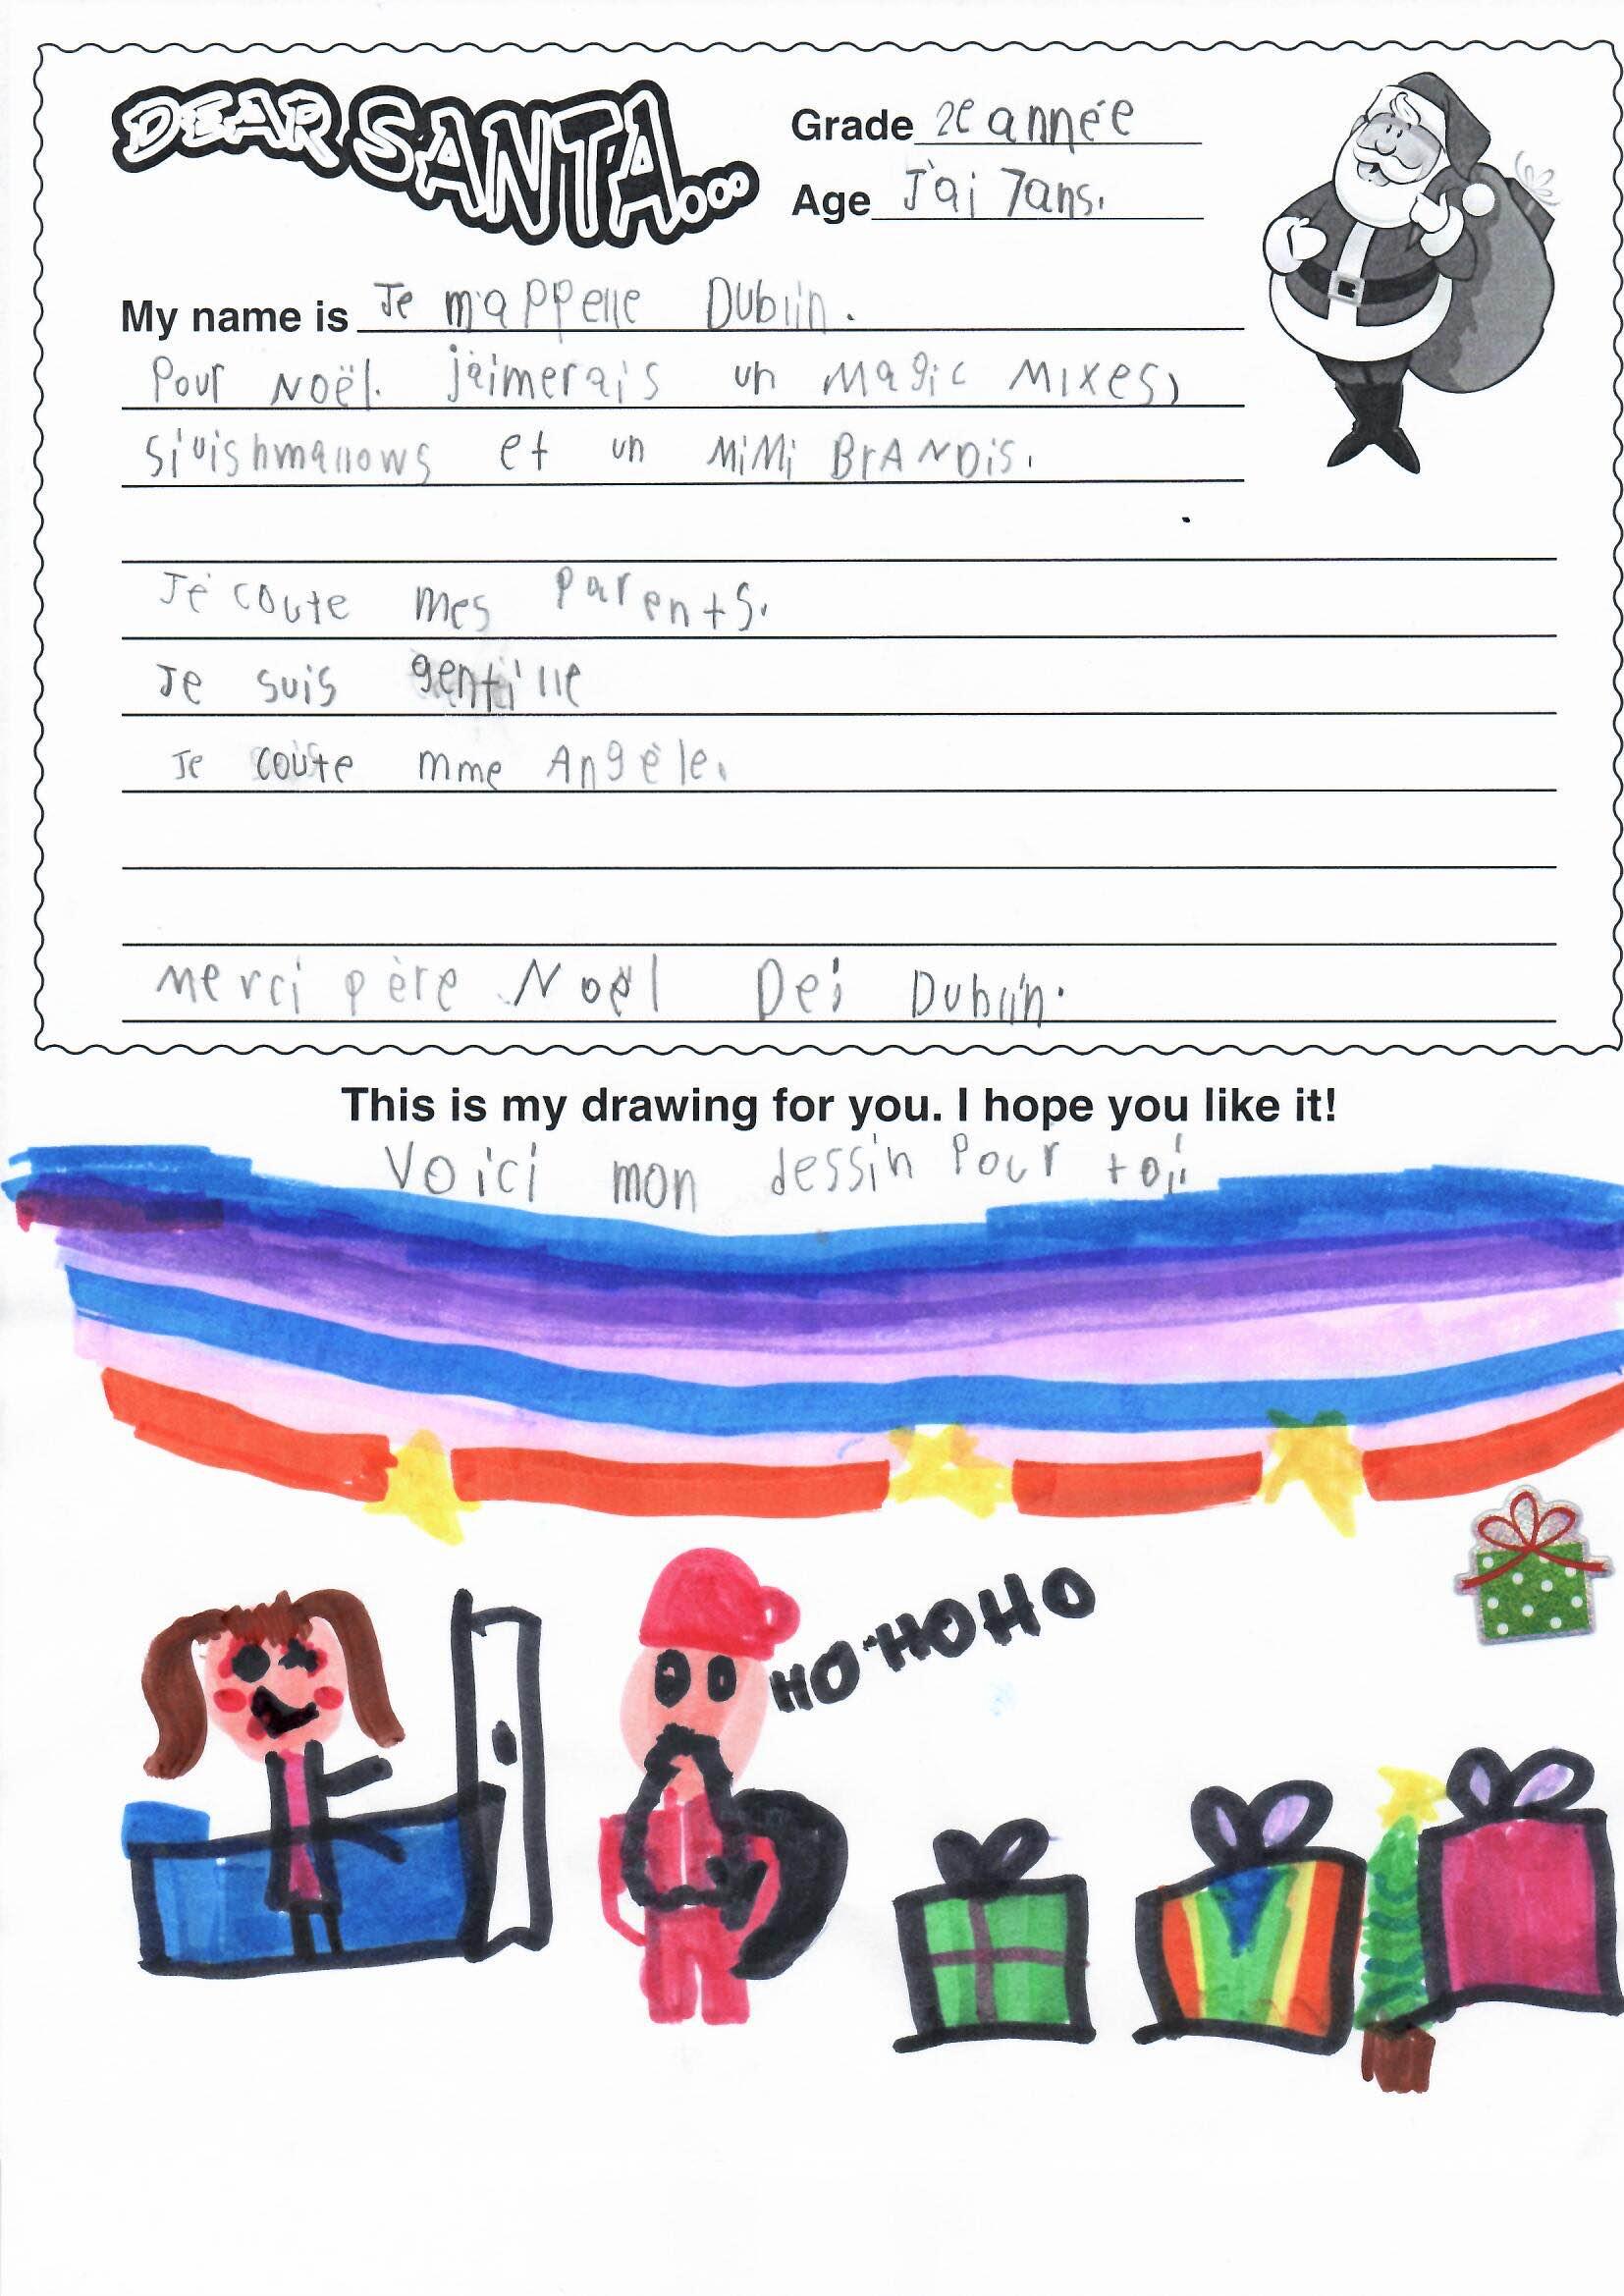 DEAR SANTA...
Grade 2e année
Age J'ai 7ans.
My name is Je m'appelle Dublin.
Pour Noël. j'aimerais un Magic MIXES,
S'uishmallows et un MiMi BrANDiS.
J'écoute mes Parents.
Je suis gentille
Je coute mme Angèle.
Merci père Noël Dei Dublin.
This is my drawing for you. I hope you like it!
Voici mon dessin Pour toi
HO-HOHO